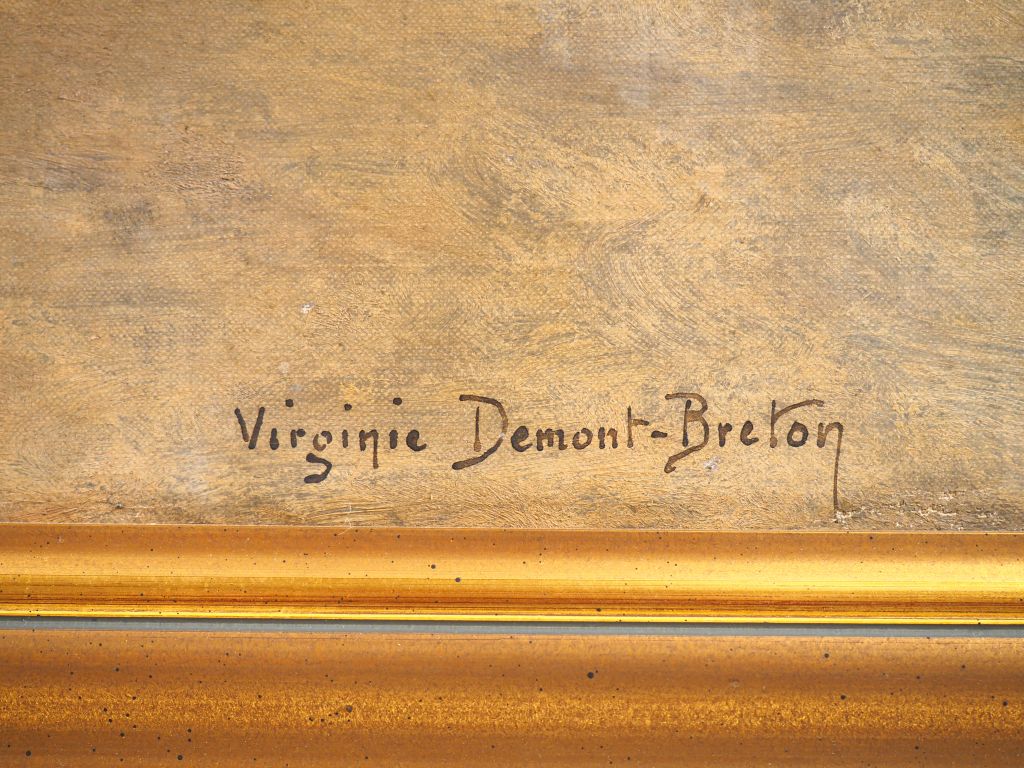 Virginie Demont-Breton